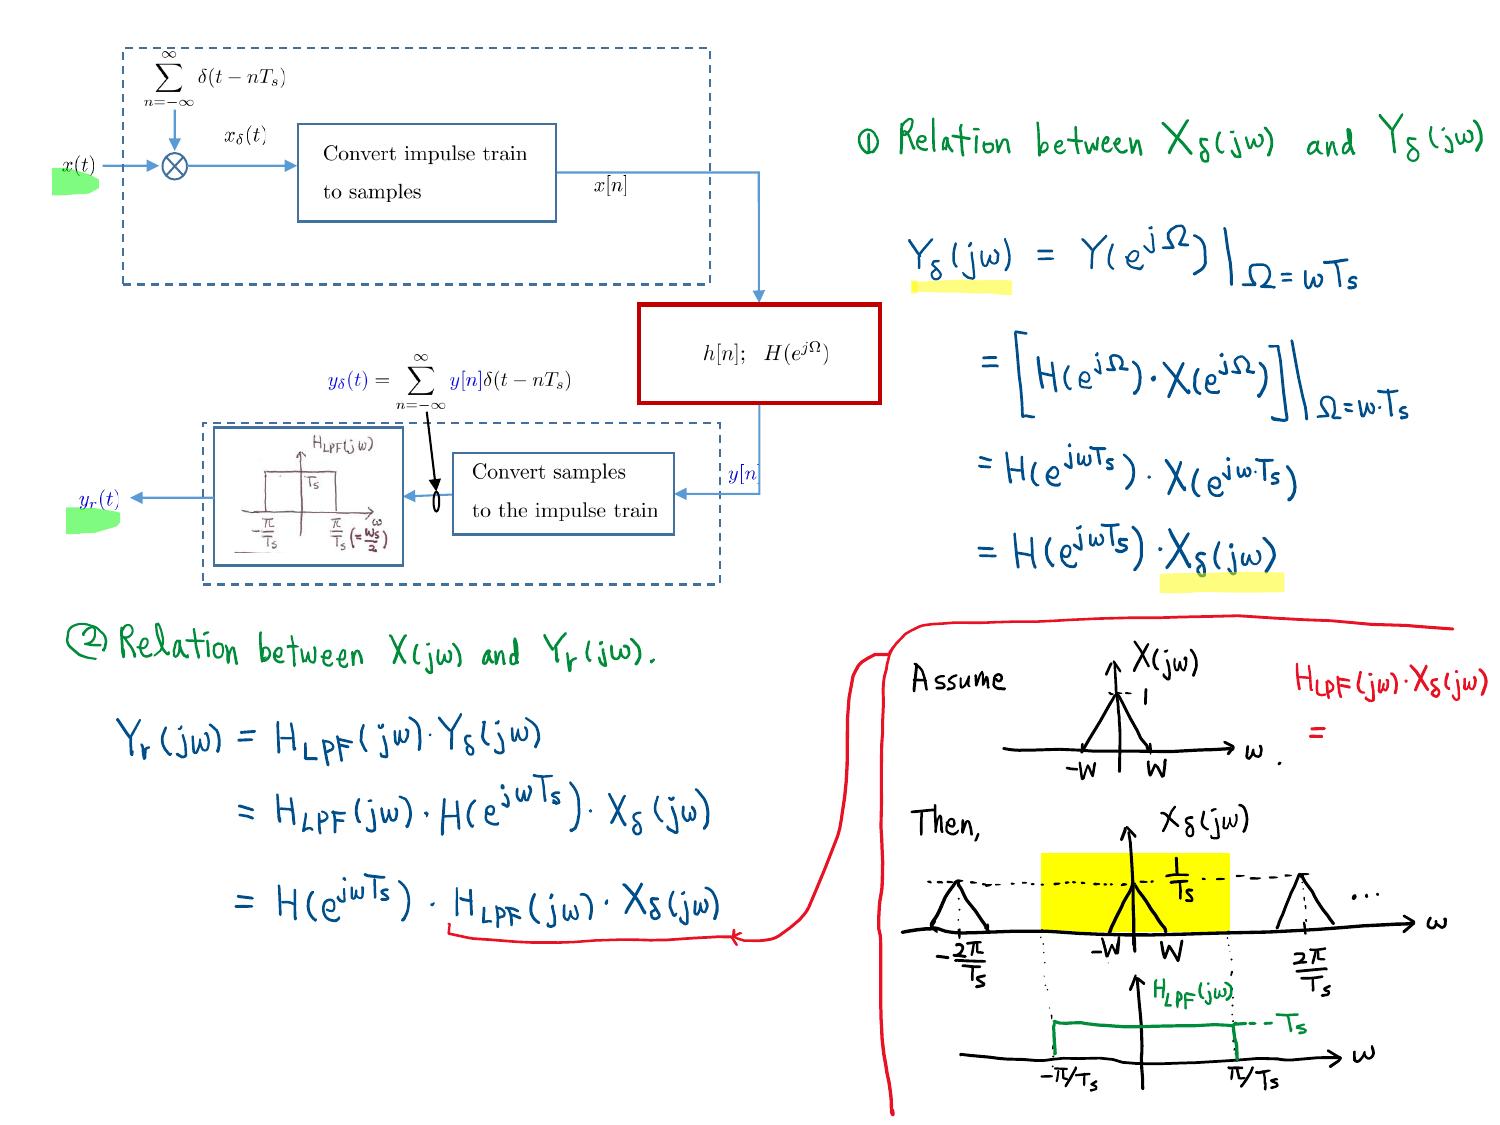 ∞
∑ δ(t − nTₛ)
n=−∞
x_δ(t)
x(t)
Convert impulse train
to samples
x[n]
h[n]; H(e^{jΩ})
∞
y_δ(t) = ∑ y[n]δ(t − nTₛ)
n=−∞
H_{LPF}(jω)
Tₛ
-π/Tₛ π/Tₛ (= ωₛ/2) ω
Convert samples
to the impulse train
y[n]
y_r(t)
① Relation between X_δ(jω) and Y_δ(jω)
Y_δ(jω) = Y(e^{jΩ})|_{Ω=ωTₛ}
= [H(e^{jΩ})·X(e^{jΩ})]|_{Ω=ω·Tₛ}
= H(e^{jωTₛ}) · X(e^{jω·Tₛ})
= H(e^{jωTₛ}) · X_δ(jω)
② Relation between X(jω) and Y_r(jω).
Y_r(jω) = H_{LPF}(jω)·Y_δ(jω)
= H_{LPF}(jω)·H(e^{jωTₛ})·X_δ(jω)
= H(e^{jωTₛ}) · H_{LPF}(jω)·X_δ(jω)
Assume
X(jω)
1
-W W ω.
H_{LPF}(jω)·X_δ(jω)
=
Then,
X_δ(jω)
1/Tₛ
...
ω
-2π/Tₛ -W W 2π/Tₛ
H_{LPF}(jω)
Tₛ
ω
-π/Tₛ π/Tₛ